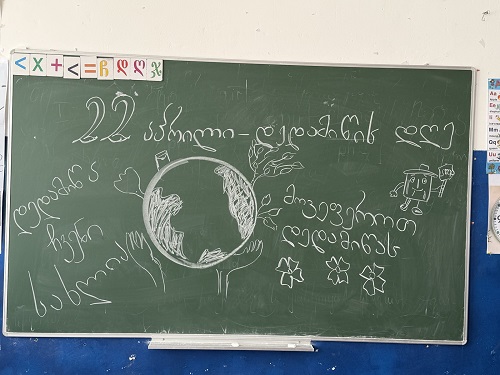 < x + < = ჩ დ ლ ჯ
22 აპრილი - დედამიწის დღე
დედამიწა
ჩვენი
სახლია
მოვეფეროთ
დედამიწას